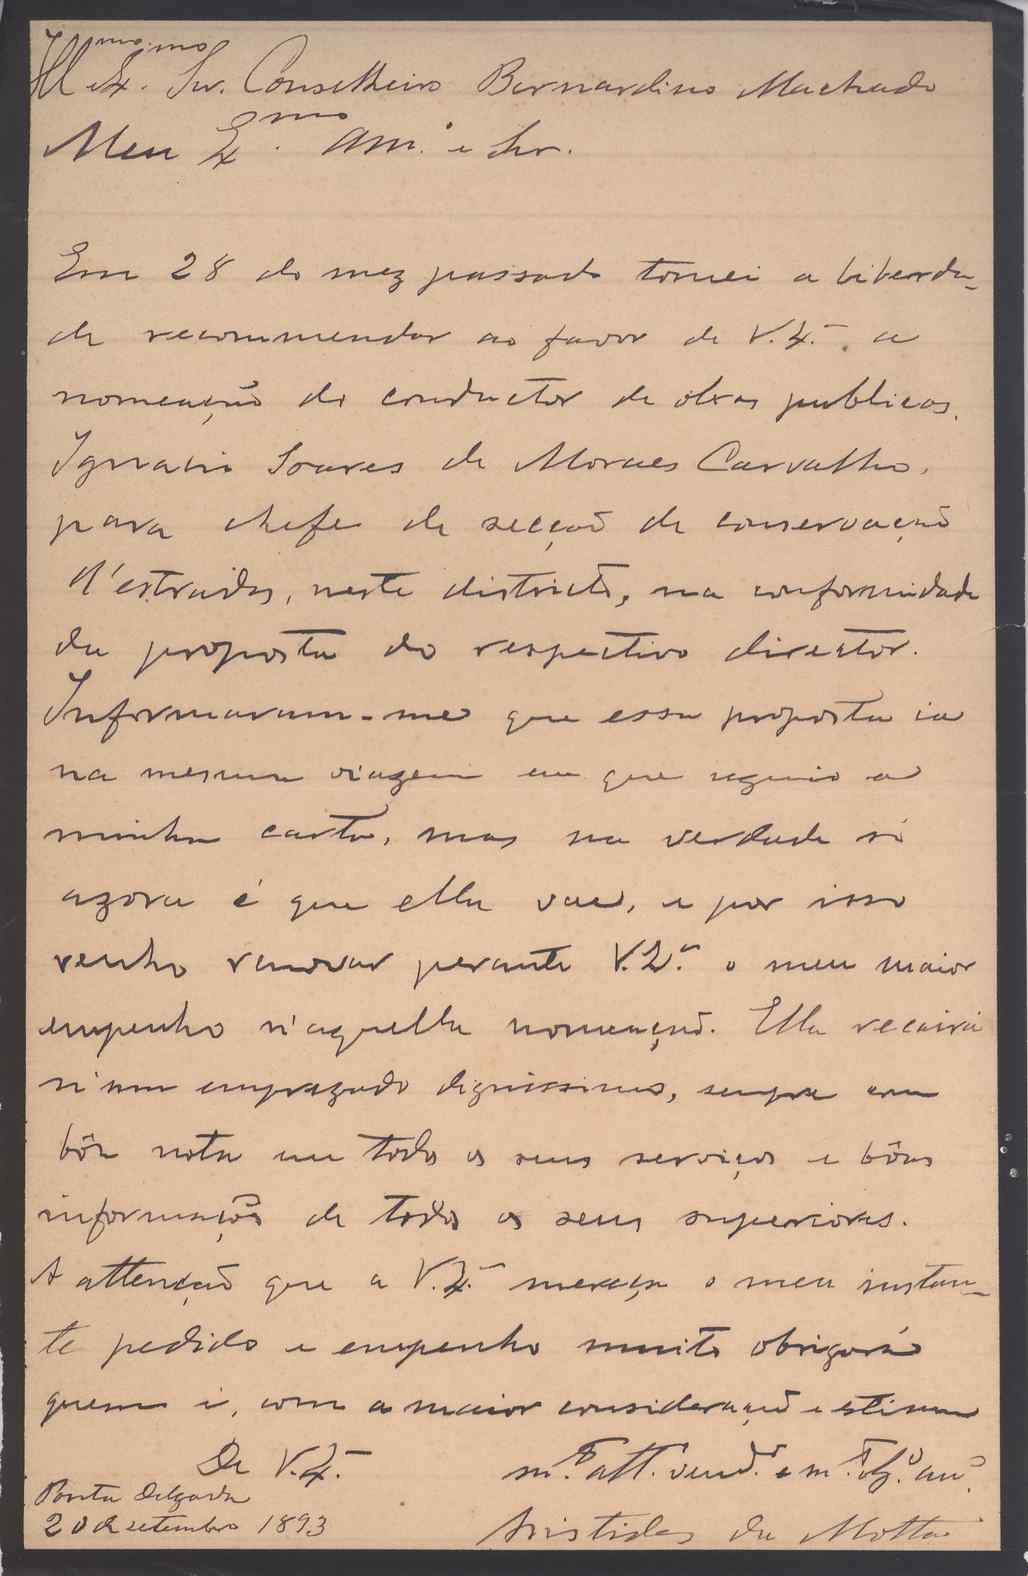 Ill.mo e Ex.mo Snr. Conselheiro Bernardino Machado
Meu Ex.mo Am.o e Snr.
Em 28 do mez passado tomei a liberda-
de recommendar ao favor de V. Ex.a a
nomeação do conductor de obras publicas,
Ignacio Soares de Moraes Carvalho,
para chefe de secção de conservação
d'estradas, neste districto, na conformidade
da proposta do respectivo director.
Informaram-me que essa proposta ia
na mesma viagem em que seguio a
minha carta, mas na verdade só
agora é que ella vae, e por isso
venho renovar perante V. Ex.a o meu maior
empenho n'aquella nomeação. Ella recairá
n'um empregado dignissimo, sempre com
bôa nota em todos os seus serviços e bôas
informações de todos os seus superiores.
A attenção que a V. Ex.a mereça o meu instan-
te pedido e empenho muito obrigará
quem é, com a maior consideração e estima
De V. Ex.a
m.to att. vend.or e m.to obg.o am.o
Ponta Delgada
20 de setembro 1893
Aristides da Motta